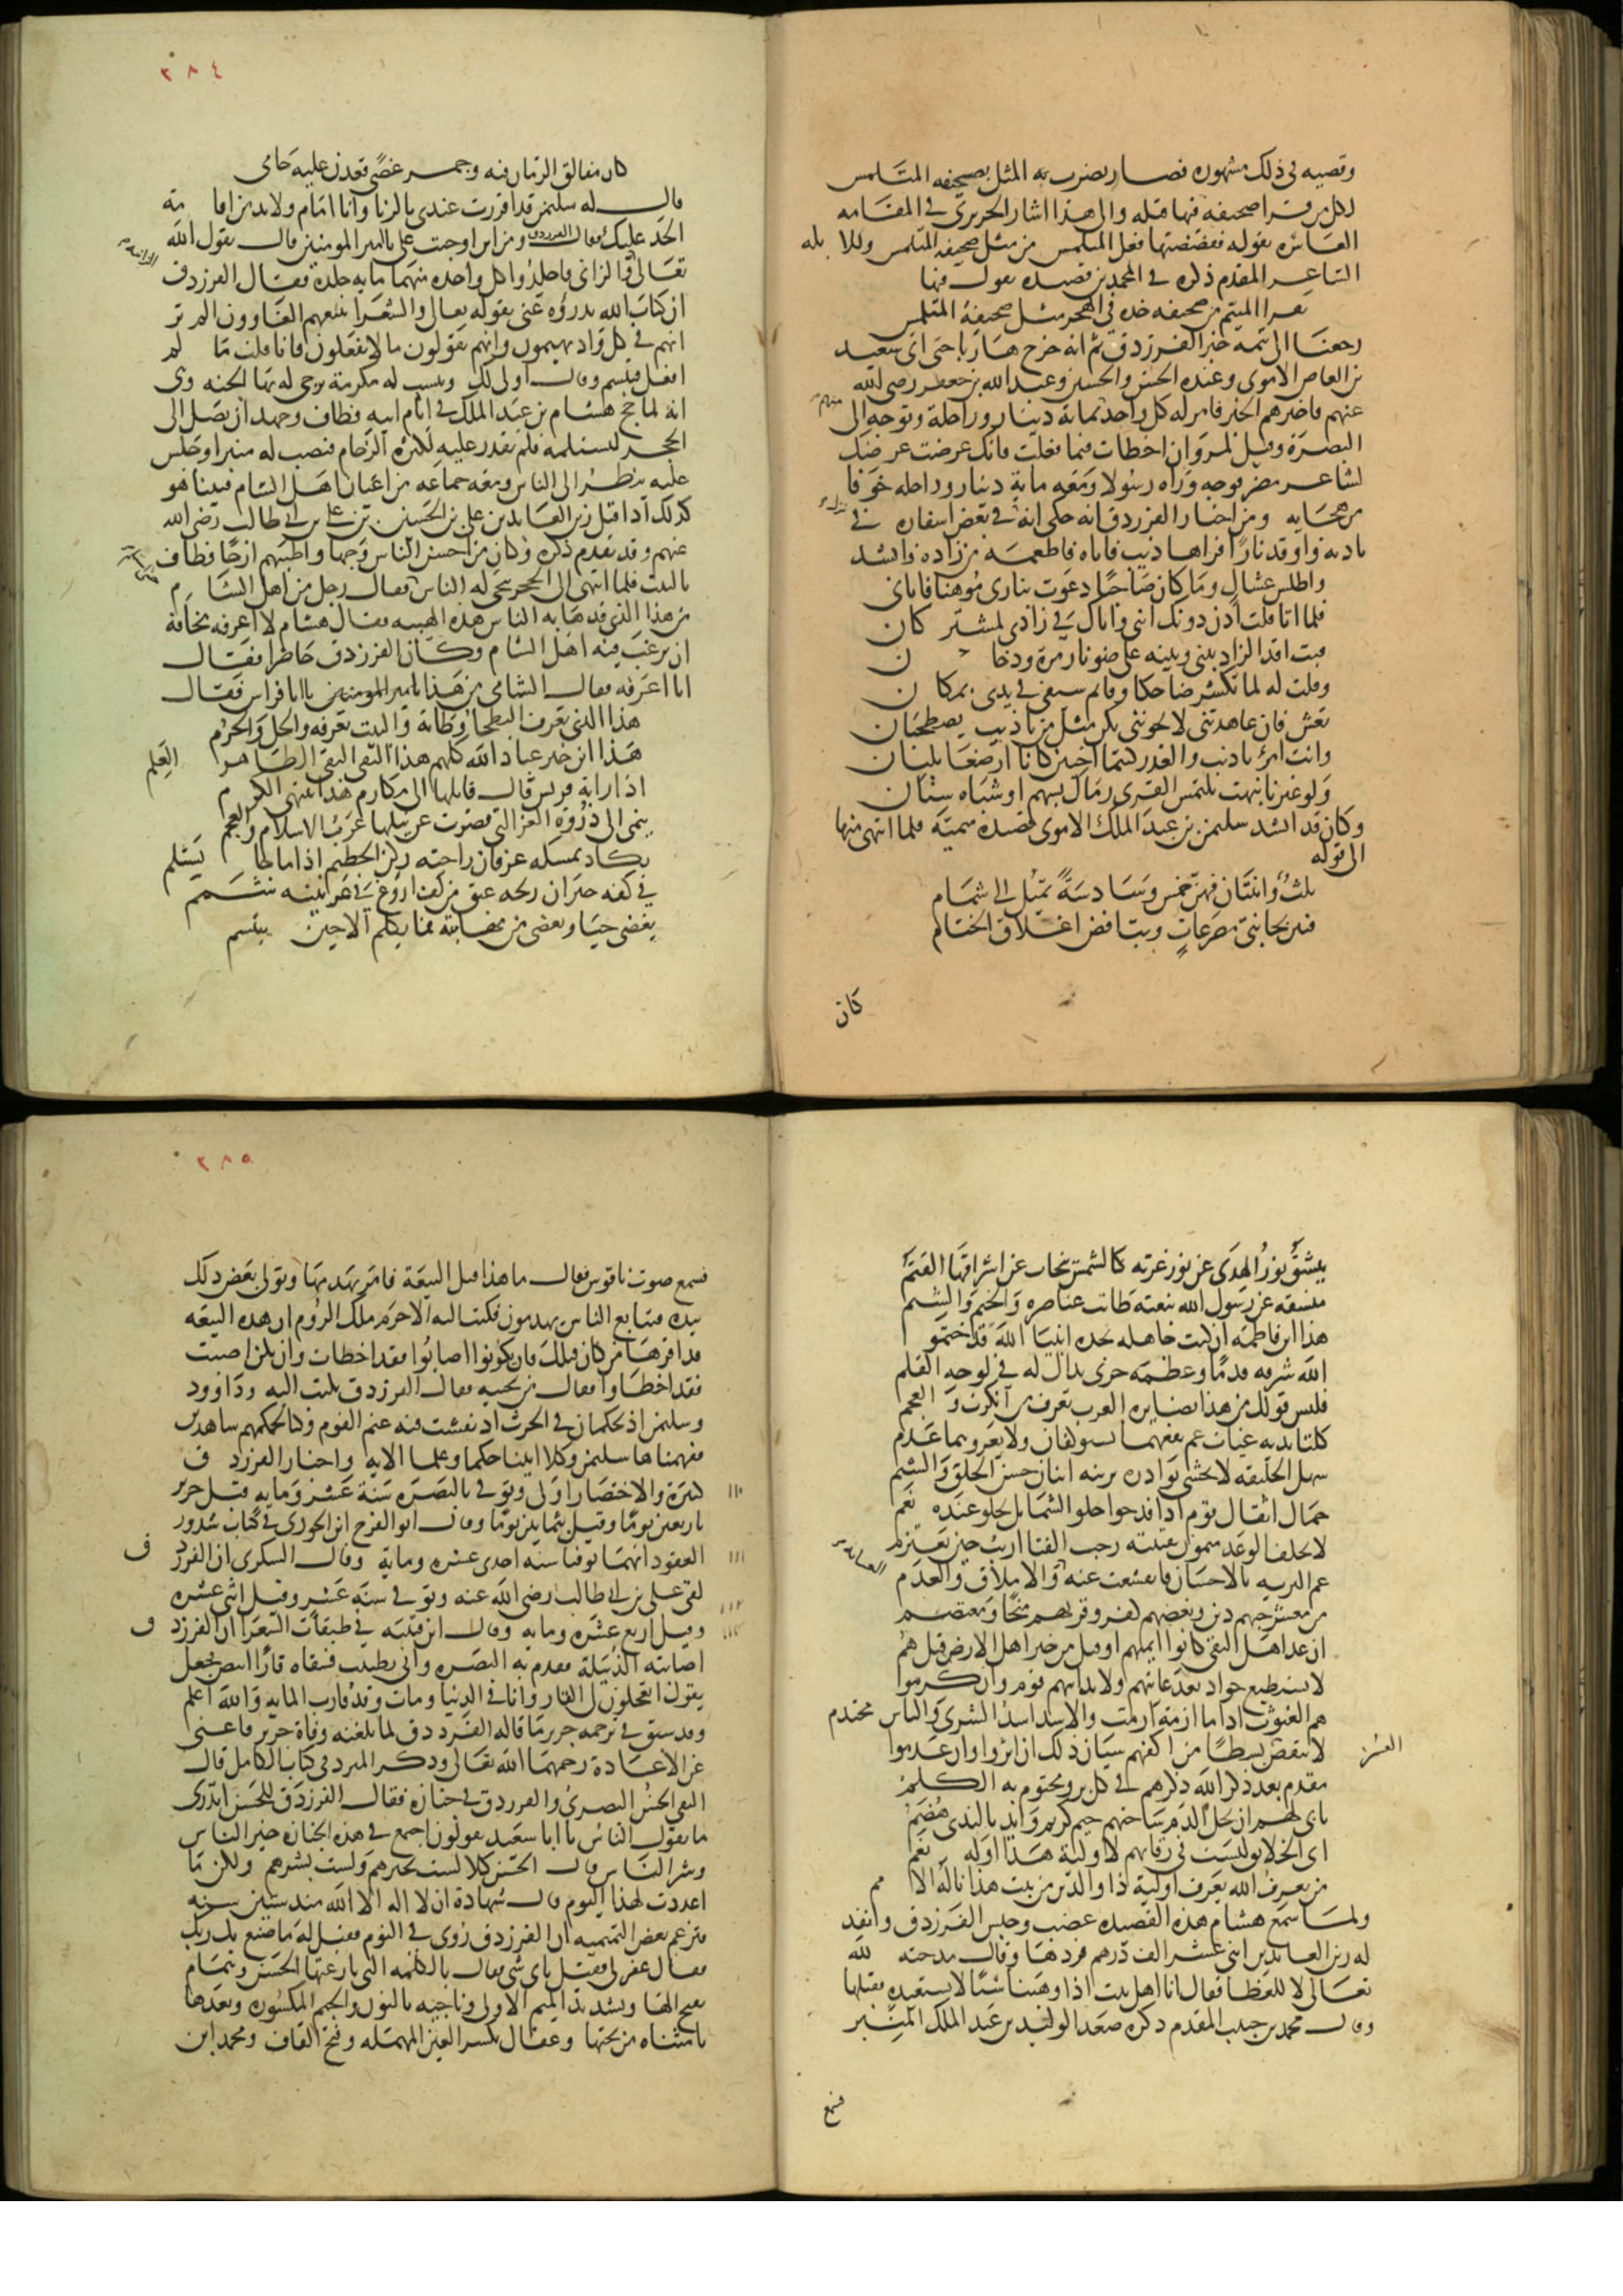 وقصيه في ذلك مشهوره فصار يضرب به المثل بصحيفه المتلمس
لكل من قرا صحيفه فيها قتله والى هذا اشار الحريرى في المقامه
العاشره بقوله ففضضتها فعل المتلمس من مثل صحيفه المتلمس وللابله
الشاعر المقدم ذكره في المحمدين قصيده يقول فيها
يقرا المتيم من صحيفه خده في الهجر مثل صحيفة المتلمس
رجعنا الى تتمه خبر الفرزدق ثم انه خرج هاربا حتى اتى سعيد
بن العاص الاموى وعنده الحسن والحسين وعبد الله بن جعفر رضى الله
عنهم فاخبرهم الخبر فامر له كل واحد بماية دينار وراحلة وتوجه الى
البصرة وقيل لمروان اخطات فيما فعلت فانك عرضت عرضك
لشاعر مضر فوجه وراه رسولا ومعه ماية دينار وراحله خوفا
من هجايه ومن اخبار الفرزدق انه حكى انه في بعض اسفاره في
باديه واوقد نارا فراها ذيب فاتاه فاطعمه من زاده وانشد
واطلس عسال وما كان صاحبا دعوت بنارى موهنا فاتانى
فلما اتا قلت ادن دونك اننى واياك في زادى لمشتركان
فبت اقد الزاد بينى وبينه على ضو نار مرة ودخان
وقلت له لما تكشر ضاحكا وقايم سيفى في يدى بمكان
تعش فان عاهدتنى لا تخوننى نكن مثل من ياذيب يصطحبان
وانت امرؤ ياذيب والغدر كنتما اخيين كانا ارضعا بلبان
ولو غيرنا نبهت تلتمس القرى رماك بسهم او شباه سنان
وكان قد انشد سليمن بن عبد الملك الاموى قصيدة ميمية فلما انتهى منها
الى قوله
ثلث واثنتان فهن خمس وسادسة تميل الى شمام
فبتن بجانبى مصرعات وبت افض اغلاق الختام
كان
٢٨٤
كان مفالق الرمان فيه وجمر غضى قعدن عليه حامى
قال له سليمن قد اقررت عندى بالزنا وانا امام ولا بد من اقامة
الحد عليك فقال الفرزدق ومن اين اوجبت على يا امير المومنين قال بقول الله
تعالى الزانية والزانى فاجلدوا كل واحده منهما مايه جلدة فقال الفرزدق
ان كتاب الله يدرؤه عنى بقوله تعالى والشعرا يتبعهم الغاوون الم تر
انهم في كل واد يهيمون وانهم يقولون مالا يفعلون فانا قلت ما لم
افعل فتبسم وقال اولى لك وينسب له مكرمة يرجى له بها الجنه وهى
انه لما حج هشام بن عبد الملك في ايام ابيه فطاف وجهد ان يصل الى
الحجر ليستلمه فلم يقدر عليه لكثرة الزحام فنصب له منبر وجلس
عليه ينظر الى الناس ومعه جماعه من اعيان اهل الشام فبينا هو
كذلك اذ اقبل زين العابدين على بن الحسين بن على بن ابى طالب رضى الله
عنهم وقد تقدم ذكره وكان من احسن الناس وجها واطيبهم ارجا فطاف
بالبيت فلما انتهى الى الحجر تنحى له الناس فقال رجل من اهل الشام
من هذا الذى قد هابه الناس هذه الهيبه فقال هشام لا اعرفه مخافة
ان يرغب فيه اهل الشام وكان الفرزدق حاضرا فقال
انا اعرفه فقال الشامى من هذا يا ابا فراس فقال
هذا الذى تعرف البطحا وطاته والبيت يعرفه والحل والحرم
هذا ابن خير عباد الله كلهم هذا التقى النقى الطاهر العلم
اذا راته قريش قال قايلها الى مكارم هذا ينتهى الكرم
ينمى الى ذروة العز التى قصرت عن نيلها عرب الاسلام والعجم
يكاد يمسكه عرفان راحته ركن الحطيم اذا ما جا يستلم
في كفه خيزران ريحه عبق من كف اروع في عرنينه شمم
يغضى حيا ويغضى من مهابته فما يكلم الا حين يبتسم
ينشق نور الهدى عن نور غرته كالشمس تنجاب عن اشراقها القتم
منشقه عن رسول الله نبعته طابت عناصره والخيم والشيم
هذا ابن فاطمه ان كنت جاهله بجده انبيا الله قد ختموا
الله شرفه قدما وعظمه جرى بذاك له في لوحه القلم
فليس قولك من هذا بضايره العرب تعرف من انكرت والعجم
كلتا يديه غياث عم نفعهما يستوكفان ولا يعروهما عدم
سهل الخليقه لا تخشى بوادره يزينه اثنان حسن الخلق والشيم
حمال اثقال قوم اذا فدحوا حلو الشمايل يحلو عنده نعم
لا يخلف الوعد ميمون نقيبته رحب الفنا اريب حين يعتزم
عم البريه بالاحسان فانقشعت عنه والاملاق والعدم
من معشر حبهم دين وبغضهم كفر وقربهم منجا ومعتصم
ان عد اهل التقى كانوا ايمتهم او قيل من خير اهل الارض قيل هم
لا يستطيع جواد بعد غايتهم ولا يدانيهم قوم وان كرموا
هم الغيوث اذا ما ازمة ازمت والاسد اسد الشرى والباس محتدم
لا ينقص العسر بسطا من اكفهم سيان ذلك ان اثروا وان عدموا
مقدم بعد ذكر الله ذكرهم في كل بر ومختوم به الكلم
يابى لهم ان يحل الذم ساحتهم خيم كريم وايد بالندى هضم
اى الخلايق ليست في رقابهم لاولية هذا اوله نعم
من يعرف الله يعرف اولية ذا والدين من بيت هذا ناله الامم
ولما سمع هشام هذه القصيده غضب وحبس الفرزدق وانفد
له زين العابدين اثنى عشر الف درهم فردها وقال مدحته لله
تعالى لا للعطا فقال انا اهل بيت اذا وهبنا شيا لا نستعيده فقبلها
وقال محمد بن حبيب المقدم ذكره صعد الوليد بن عبد الملك المنبر
فسمع
٢٨٥
فسمع صوت ناقوس فقال ما هذا قيل البيعة فامر بهدمها وتولى بعض ذلك
بيده فتتابع الناس يهدمون فكتب اليه الاخرم ملك الروم ان هذه البيعه
قد اقرها من كان قبلك فان يكونوا اصابوا فقد اخطات وان تكن اصبت
فقد اخطاوا فقال من يجيبه فقال الفرزدق تكتب اليه وداوود
وسليمن اذ يحكمان في الحرث اذ نفشت فيه غنم القوم وكنا لحكمهم شاهدين
ففهمناها سليمن وكلا اتينا حكما وعلما الايه واخبار الفرزدق
كثيرة والاختصار اولى وتوفى بالبصره سنة عشر ومايه قبل جرير ١١٠
باربعين يوما وقيل بثمانين يوما وقال ابو الفرج ابن الجوزى في كتاب شذور
العقود انهما توفيا سنه احدى عشره وماية وقال السكرى ان الفرزدق ١١١
لقى على بن ابى طالب رضى الله عنه وتوفى سنة عشر وقيل اثنى عشره ١١٢
وقيل اربع عشره ومايه وقال ابن قتيبه في طبقات الشعرا ان الفرزدق ١١٤
اصابته الدبيلة فقدم به البصره واتى بطبيب فسقاه قارا ابيض فجعل
يقول اتعجلون لى القار وانا في الدنيا ومات وقد قارب المايه والله اعلم
وقد سبق في ترجمه جرير ما قاله الفرزدق لما بلغته وفاة جرير فاغنى
عن الاعادة رحمهما الله تعالى وذكر المبرد في كتاب الكامل قال
التقى الحسن البصرى والفرزدق في جنازه فقال الفرزدق للحسن اتدرى
ما يقول الناس يا ابا سعيد يقولون اجتمع في هذه الجنازه خير الناس
وشر الناس قال الحسن كلا لست بخيرهم ولست بشرهم ولكن ما
اعددت لهذا اليوم قال شهادة ان لا اله الا الله منذ ستين سنه
فتزعم بعض التميميه ان الفرزدق روى في النوم فقيل له ما صنع بك ربك
فقال غفر لى فقيل باى شى فقال بالكلمه التى نازعنيها الحسن وهمام
بفتح الها وبتشديد الميم الاولى وناجيه بالنون والجيم المكسوره وبعدها
يا مثناه من تحتها وعقال بكسر العين المهمله وفتح القاف ومحمد ابن